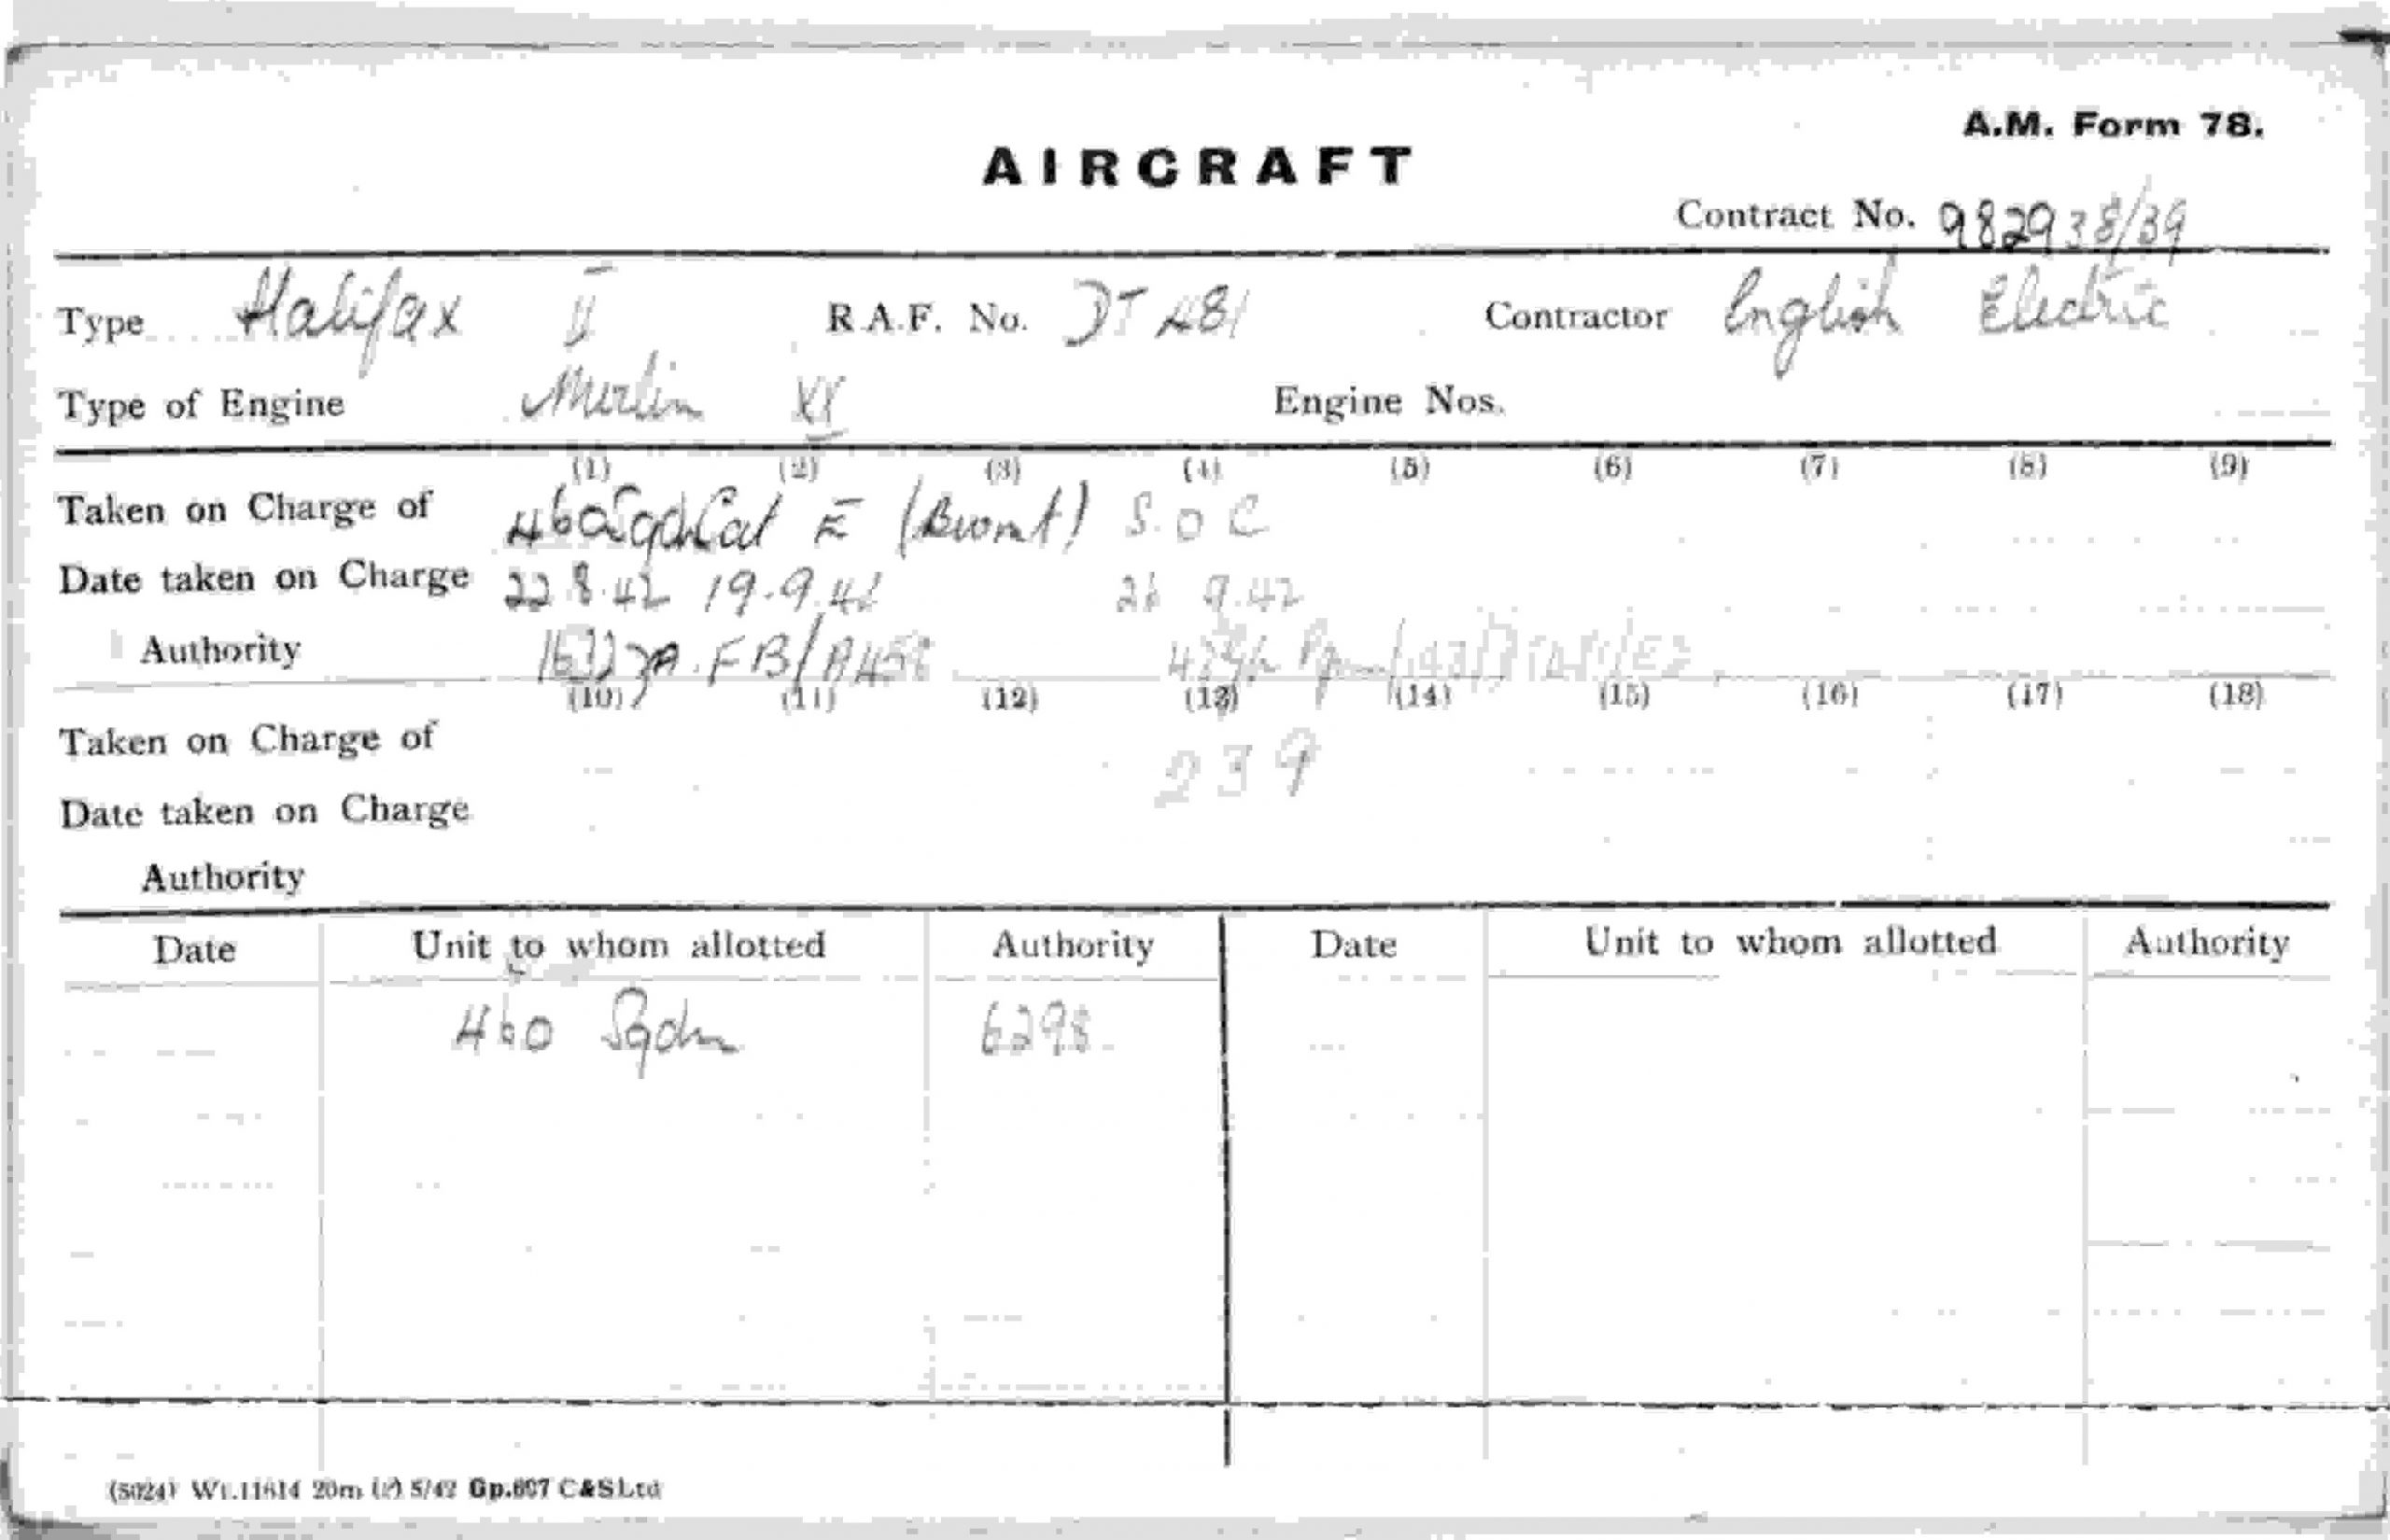 A.M. Form 78.
AIRCRAFT
Contract No. 982938/39
Type Halifax II R.A.F. No. DT 481 Contractor English Electric
Type of Engine Merlin XX Engine Nos.
(1) (2) (3) (4) (5) (6) (7) (8) (9)
Taken on Charge of 460 Sqdn Cat E (Burnt) S.O.C
Date taken on Charge 22.8.42 19.9.42 26 9.42
Authority FB/A458
(10) (11) (12) (13) (14) (15) (16) (17) (18)
Taken on Charge of 239
Date taken on Charge
Authority
Date Unit to whom allotted Authority Date Unit to whom allotted Authority
460 Sqdn 6298
(5024) Wt.11614 20m 5/42 Gp.697 C&S Ltd